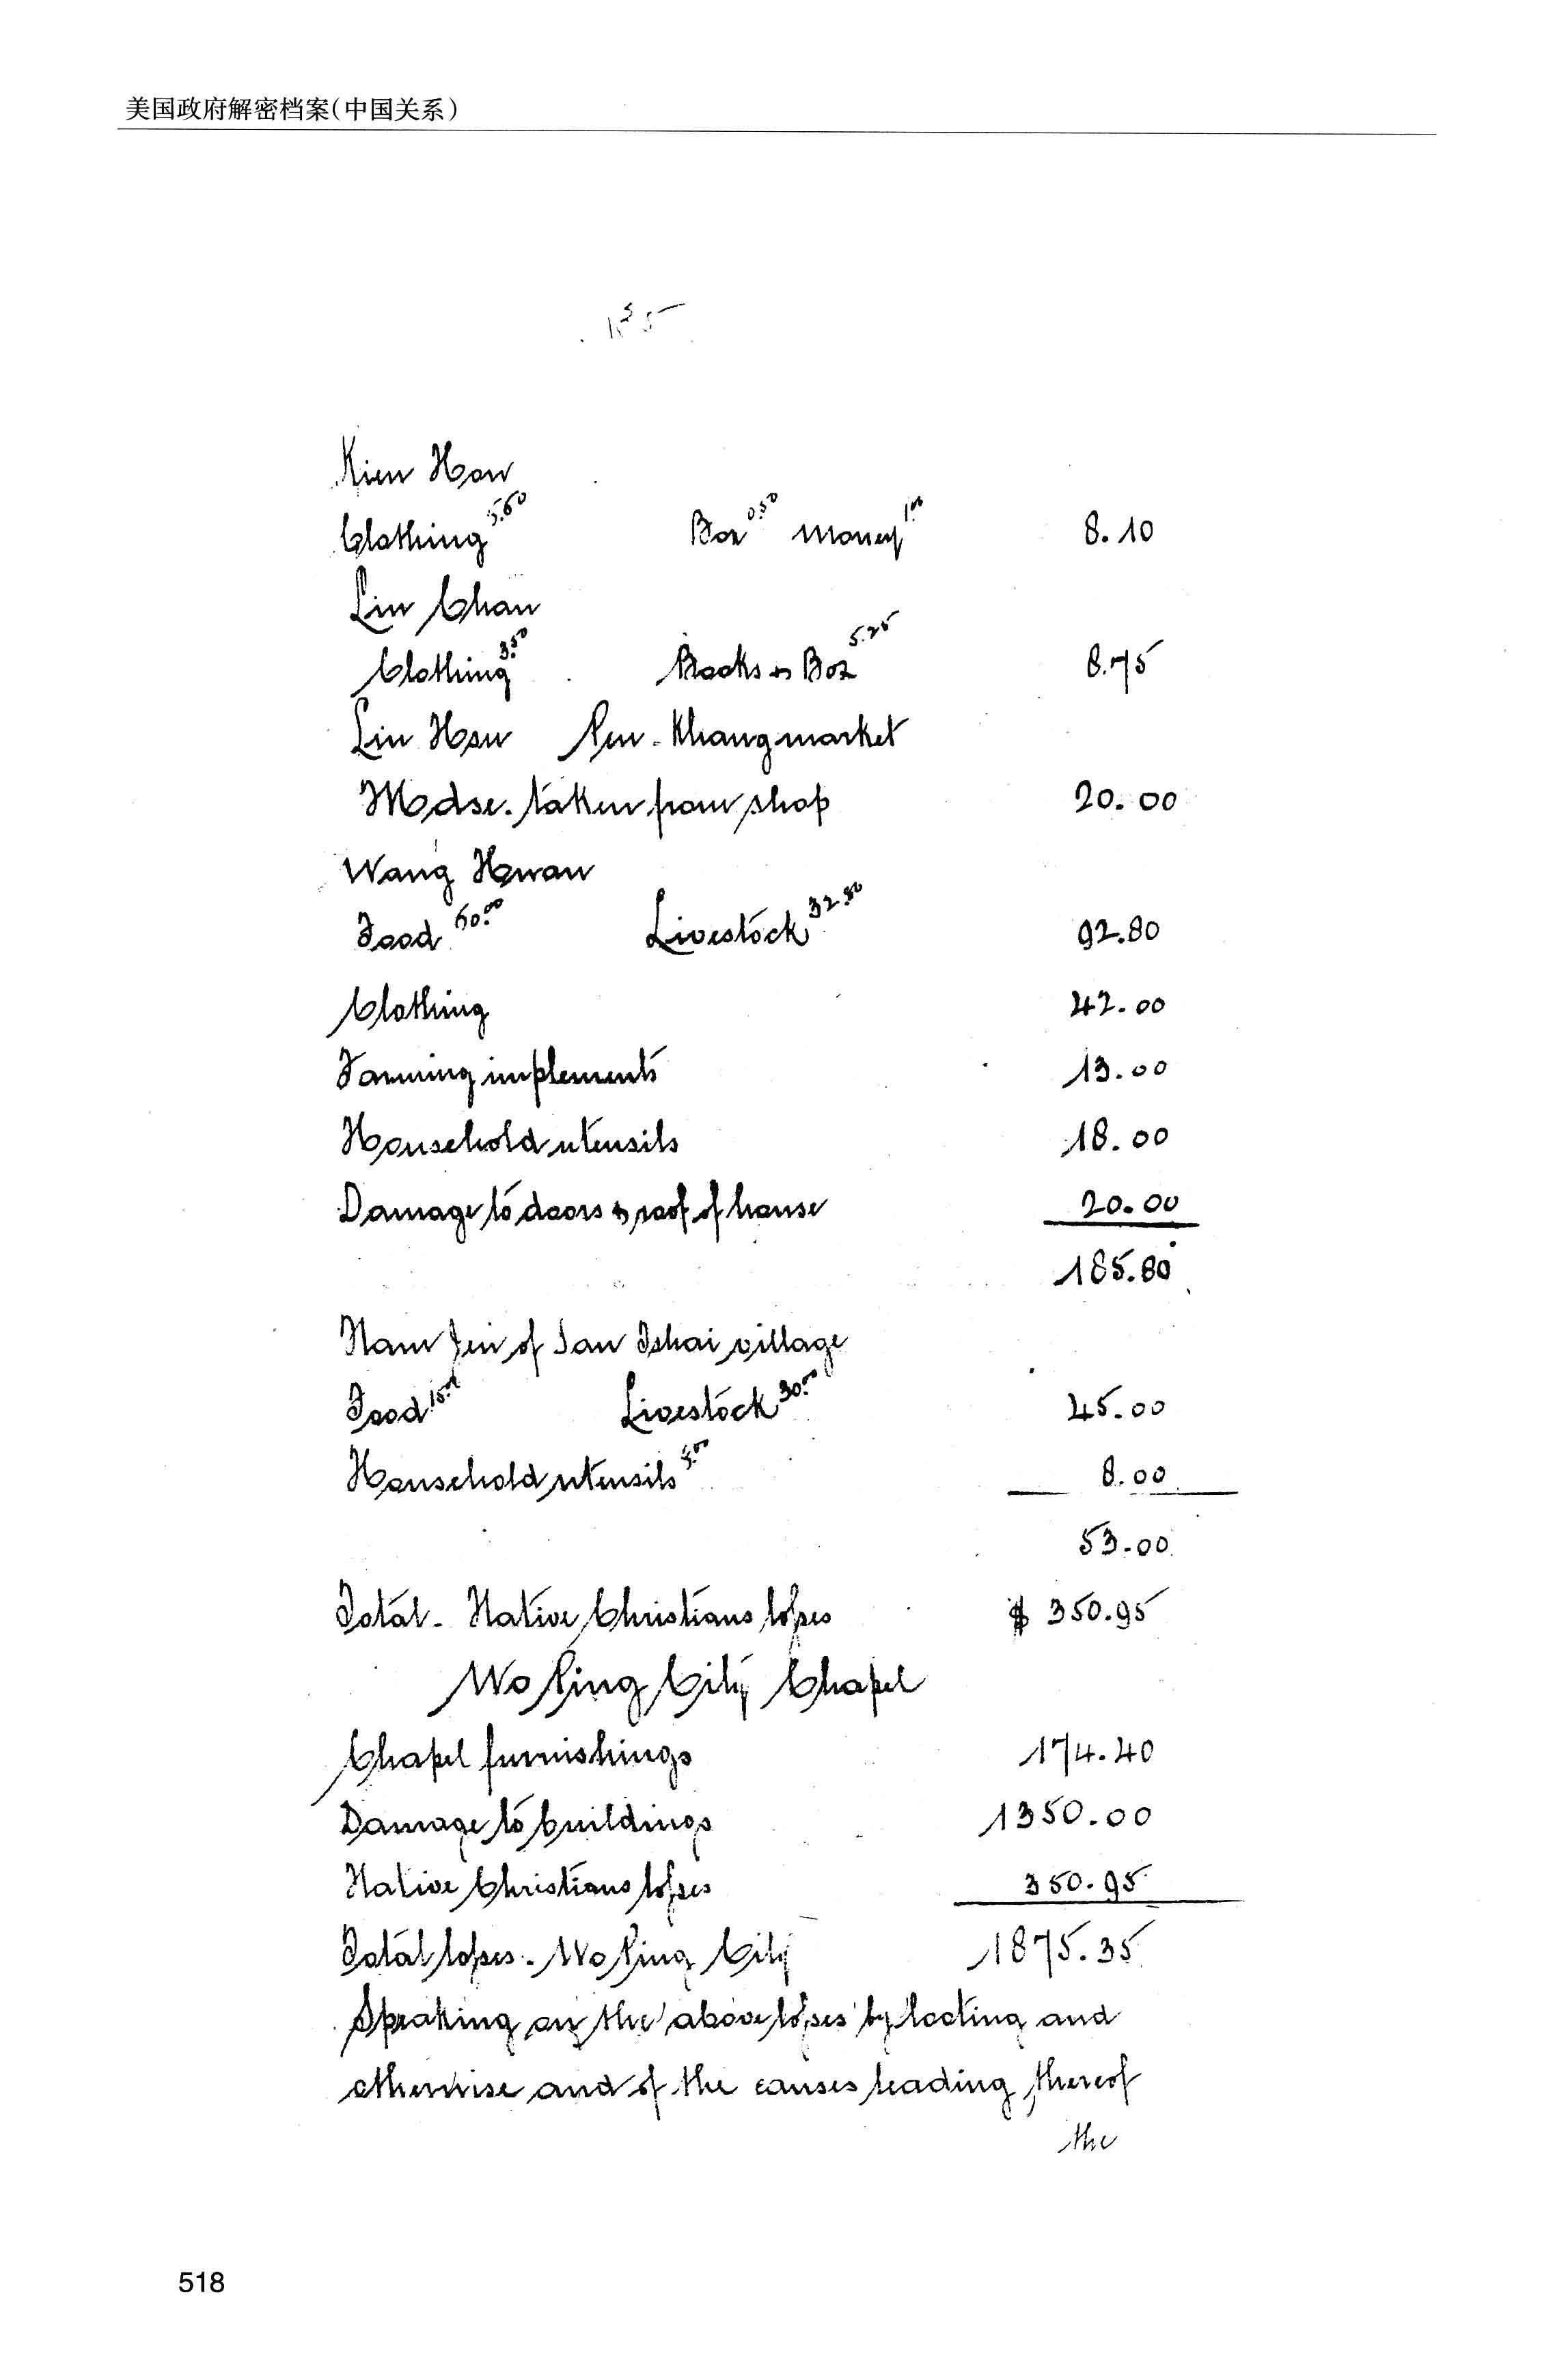 美国政府解密档案(中国关系)
Kien How
Clothing 5.60 Box 0.50 Money 1.00 8.10
Lin Chan
Clothing 3.50 Books & Box 5.25 8.75
Lin Hsu Pen-Khang market
Mdse. taken from shop 20.00
Wang Hwan
Food 60.00 Livestock 32.80 92.80
Clothing 42.00
Farming implements 13.00
Household utensils 18.00
Damage to doors & roof of house 20.00
185.80
Nam Jin of San Tshai village
Food 15.00 Livestock 30.00 45.00
Household utensils 8.00
53.00
Total - Native Christians losses $ 350.95
Wo Ping City Chapel
Chapel furnishings 174.40
Damage to buildings 1350.00
Native Christians losses 350.95
Total losses - Wo Ping City 1875.35
Speaking on the above losses by looting and
otherwise and of the causes leading thereof
the
518